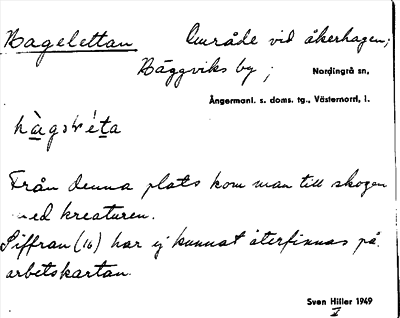 Bagelettan Område vid åkerhagen;
Bäggviks by; Nordingrå sn,
Ångermanl. s. doms. tg., Västernorrl, l.
Från denna plats kom man till skogen
med kreaturen.
Siffran (16) har ej kunnat återfinnas på
arbetskartan.
Sven Hiller 1949